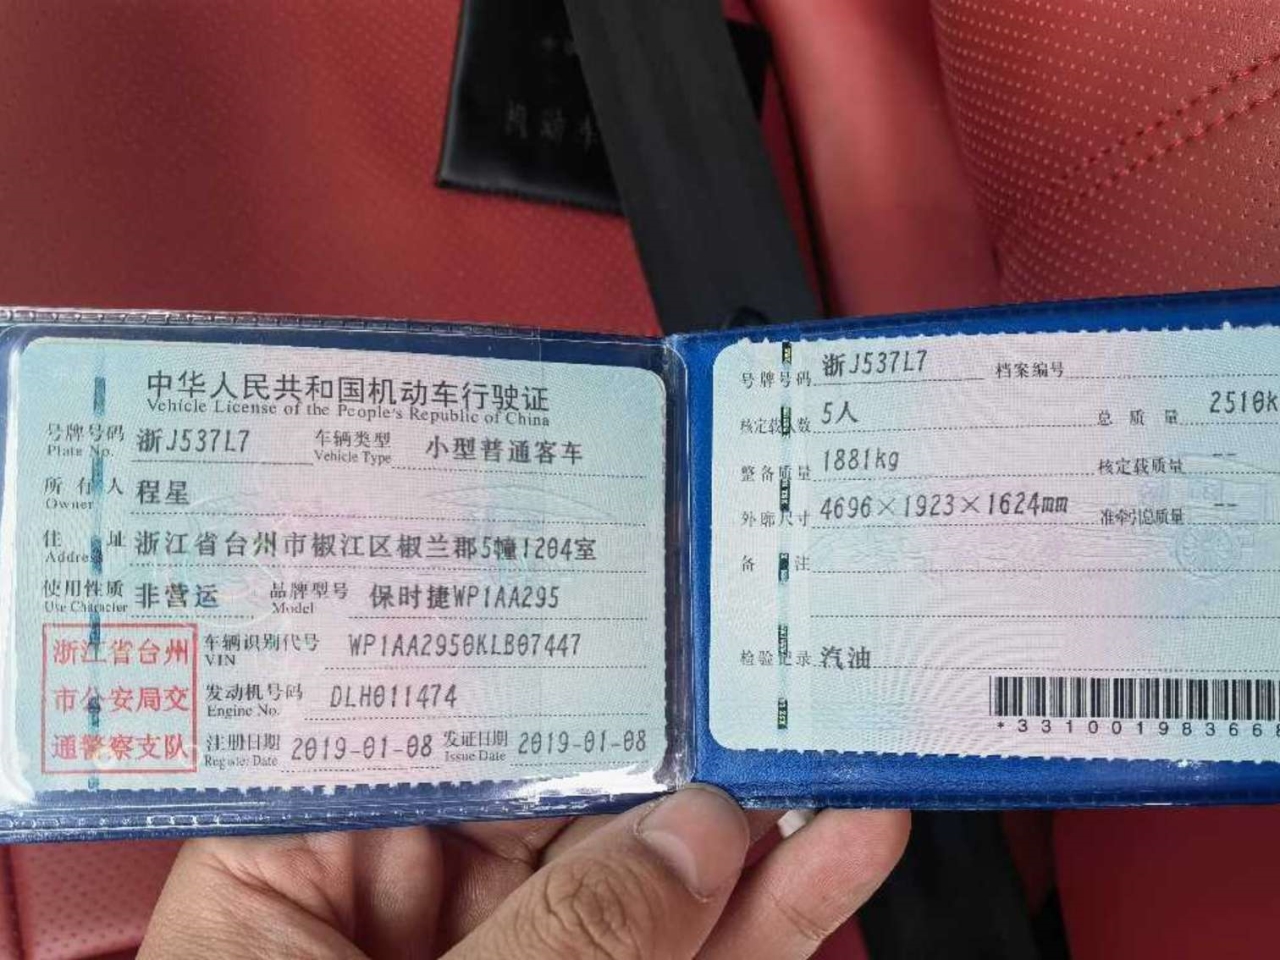 机动车
中华人民共和国机动车行驶证
Vehicle License of the People's Republic of China
号牌号码 浙J537L7 车辆类型 小型普通客车
Plate No. Vehicle Type
所有人 程星
Owner
住址 浙江省台州市椒江区椒兰郡5幢1204室
Address
使用性质 非营运 品牌型号 保时捷WP1AA295
Use Character Model
浙江省台州
市公安局交
通警察支队
车辆识别代号 WP1AA2950KLB07447
VIN
发动机号码 DLH011474
Engine No.
注册日期 2019-01-08 发证日期 2019-01-08
Register Date Issue Date
号牌号码 浙J537L7 档案编号
核定载人数 5人 总质量 2510k
整备质量 1881kg 核定载质量 --
外廓尺寸 4696×1923×1624mm 准牵引总质量 --
备注
检验记录 汽油
*331001983668